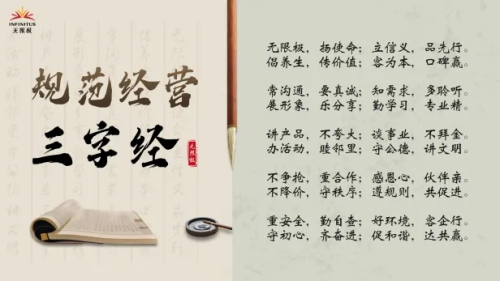 INFINITUS
无限极
规范经营
三字经
无限极
无限极，扬使命；立信义，品先行。
倡养生，传价值；客为本，口碑赢。
常沟通，要真诚；知需求，多聆听。
展形象，乐分享；勤学习，专业精。
讲产品，不夸大；谈事业，不拜金。
办活动，睦邻里；守公德，讲文明。
不争抢，重合作；感恩心，伙伴亲。
不降价，守秩序；遵规则，共促进。
重安全，勤自查；好环境，客企行。
守初心，齐奋进；促和谐，达共赢。